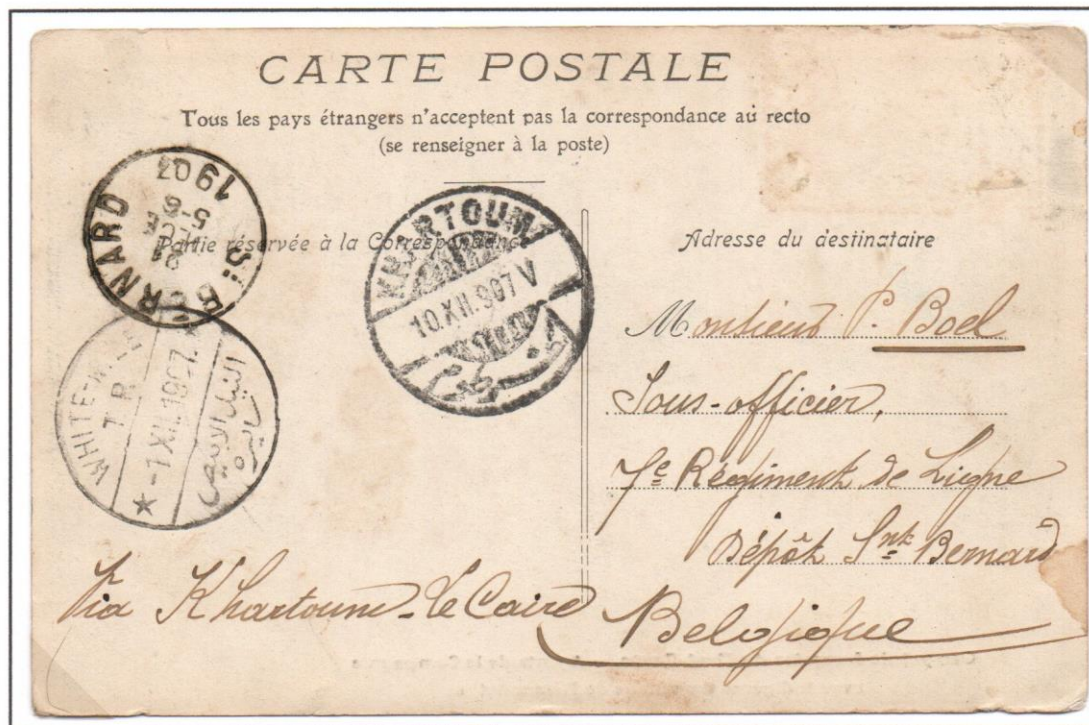 CARTE POSTALE
Tous les pays étrangers n'acceptent pas la correspondance au recto
(se renseigner à la poste)
Partie réservée à la Correspondance
Adresse du destinataire
Sᵗ BERNARD
1907
KHARTOUM
10.XII.907 V
الخرطوم
WHITE-NILE
T.P.
-1.XII.1907.
النيل الابيض
Monsieur P. Boel
Sous-officier,
7e Régiment de Ligne
Dépôt Snt Bernard
Belgique
Via Khartoum-Le Caire